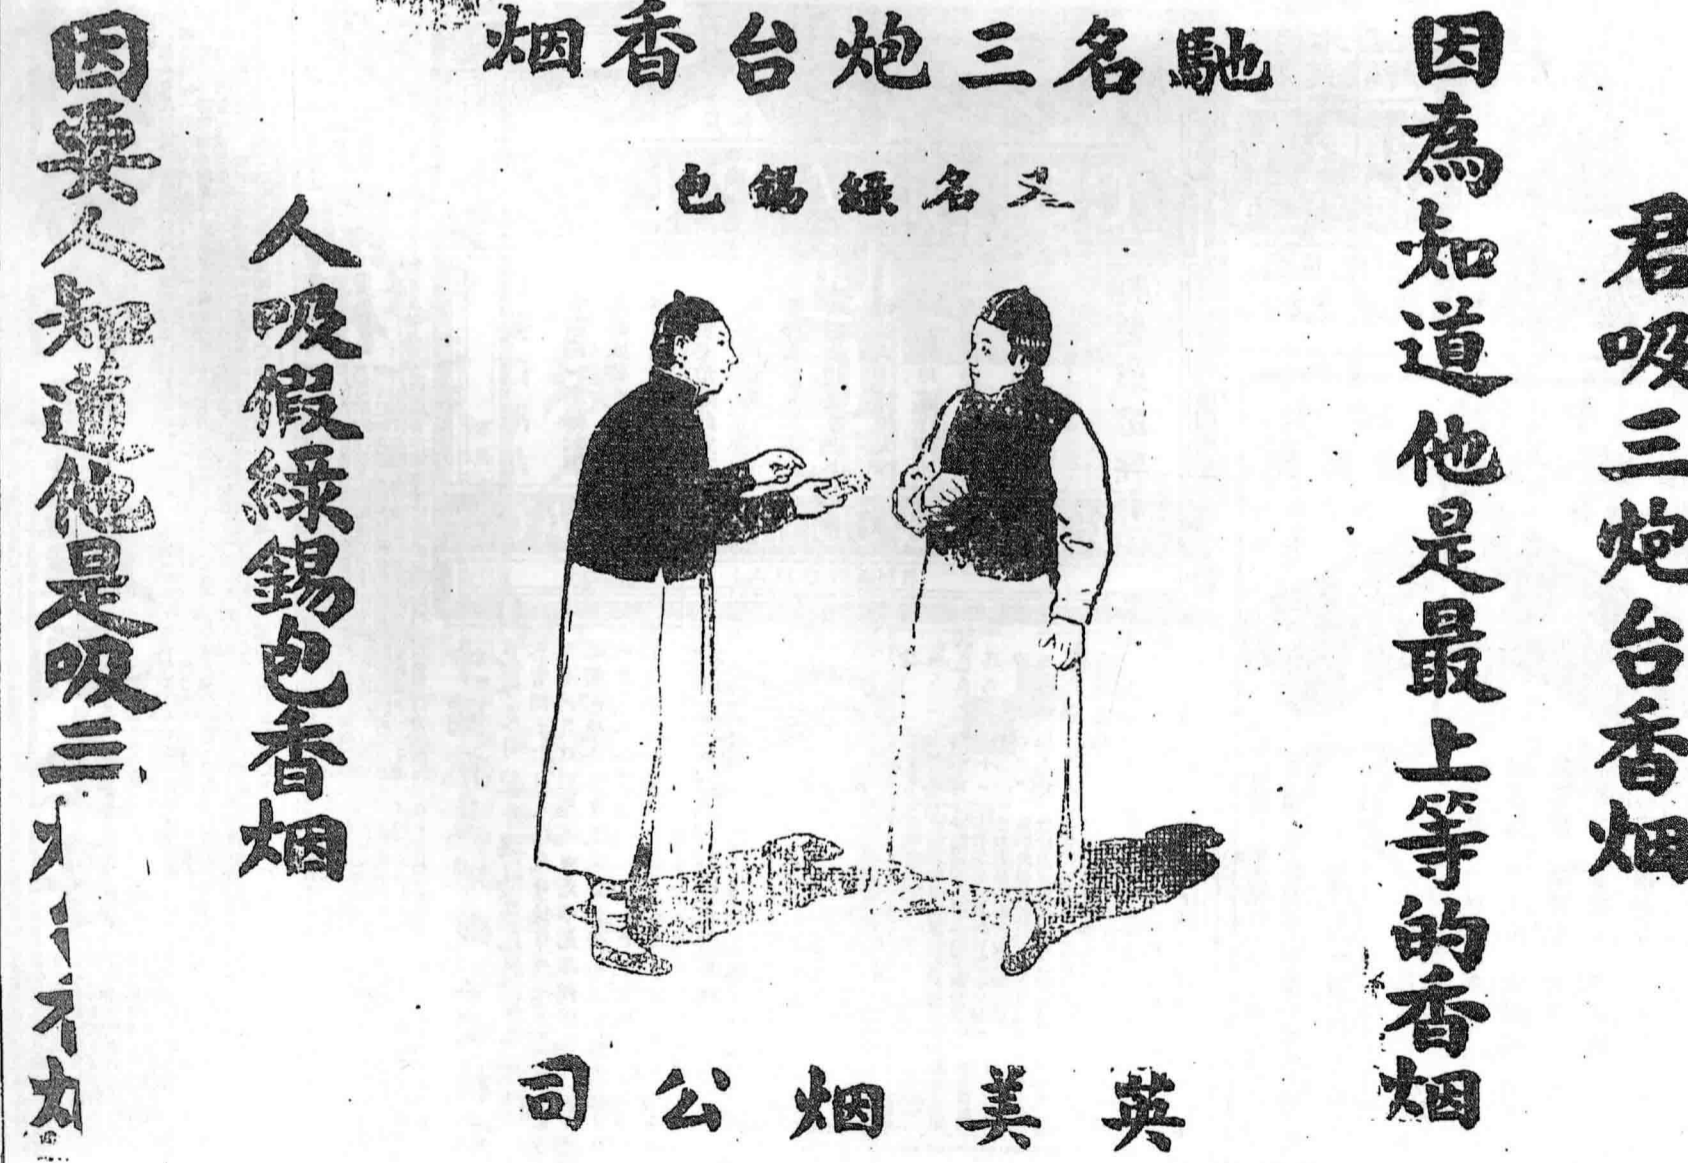 馳名三炮台香烟
又名綠錫包
君吸三炮台香烟
因為知道他是最上等的香烟
人吸假綠錫包香烟
因要人知道他是吸三
英美烟公司